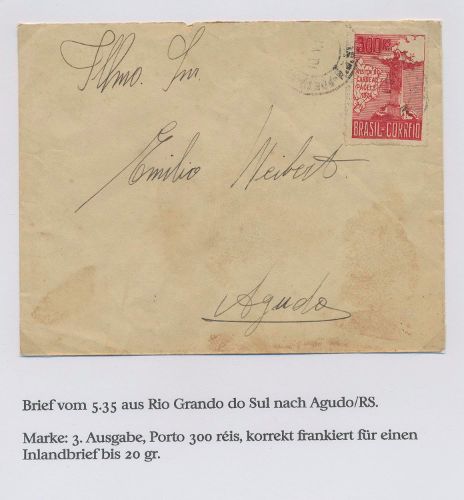 Illmo. Snr.
300 RS
VISITA DO
CARDEAL
PACELLI
1934
BRASIL-CORREIO
Emilio Neibert.
Agudo
Brief vom 5.35 aus Rio Grando do Sul nach Agudo/RS.
Marke: 3. Ausgabe, Porto 300 réis, korrekt frankiert für einen
Inlandbrief bis 20 gr.